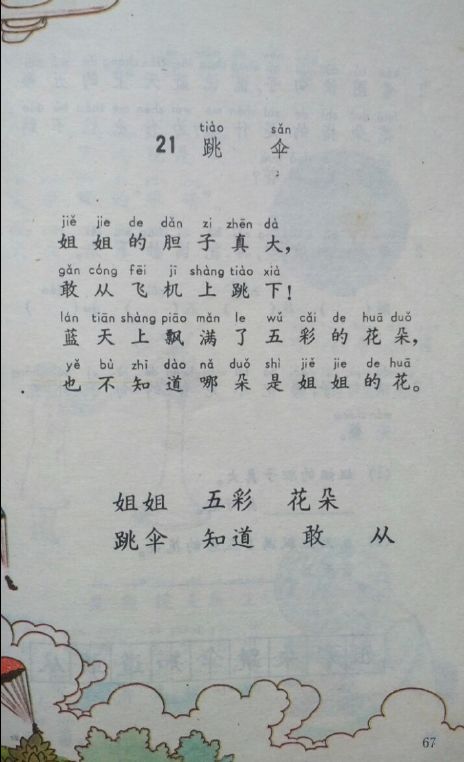 tiào sǎn
21 跳 伞
jiě jie de dǎn zi zhēn dà
姐 姐 的 胆 子 真 大，
gǎn cóng fēi jī shàng tiào xià
敢 从 飞 机 上 跳 下！
lán tiān shàng piāo mǎn le wǔ cǎi de huā duǒ
蓝 天 上 飘 满 了 五 彩 的 花 朵，
yě bù zhī dào nǎ duǒ shì jiě jie de huā
也 不 知 道 哪 朵 是 姐 姐 的 花。
姐姐 五彩 花朵
跳伞 知道 敢 从
67